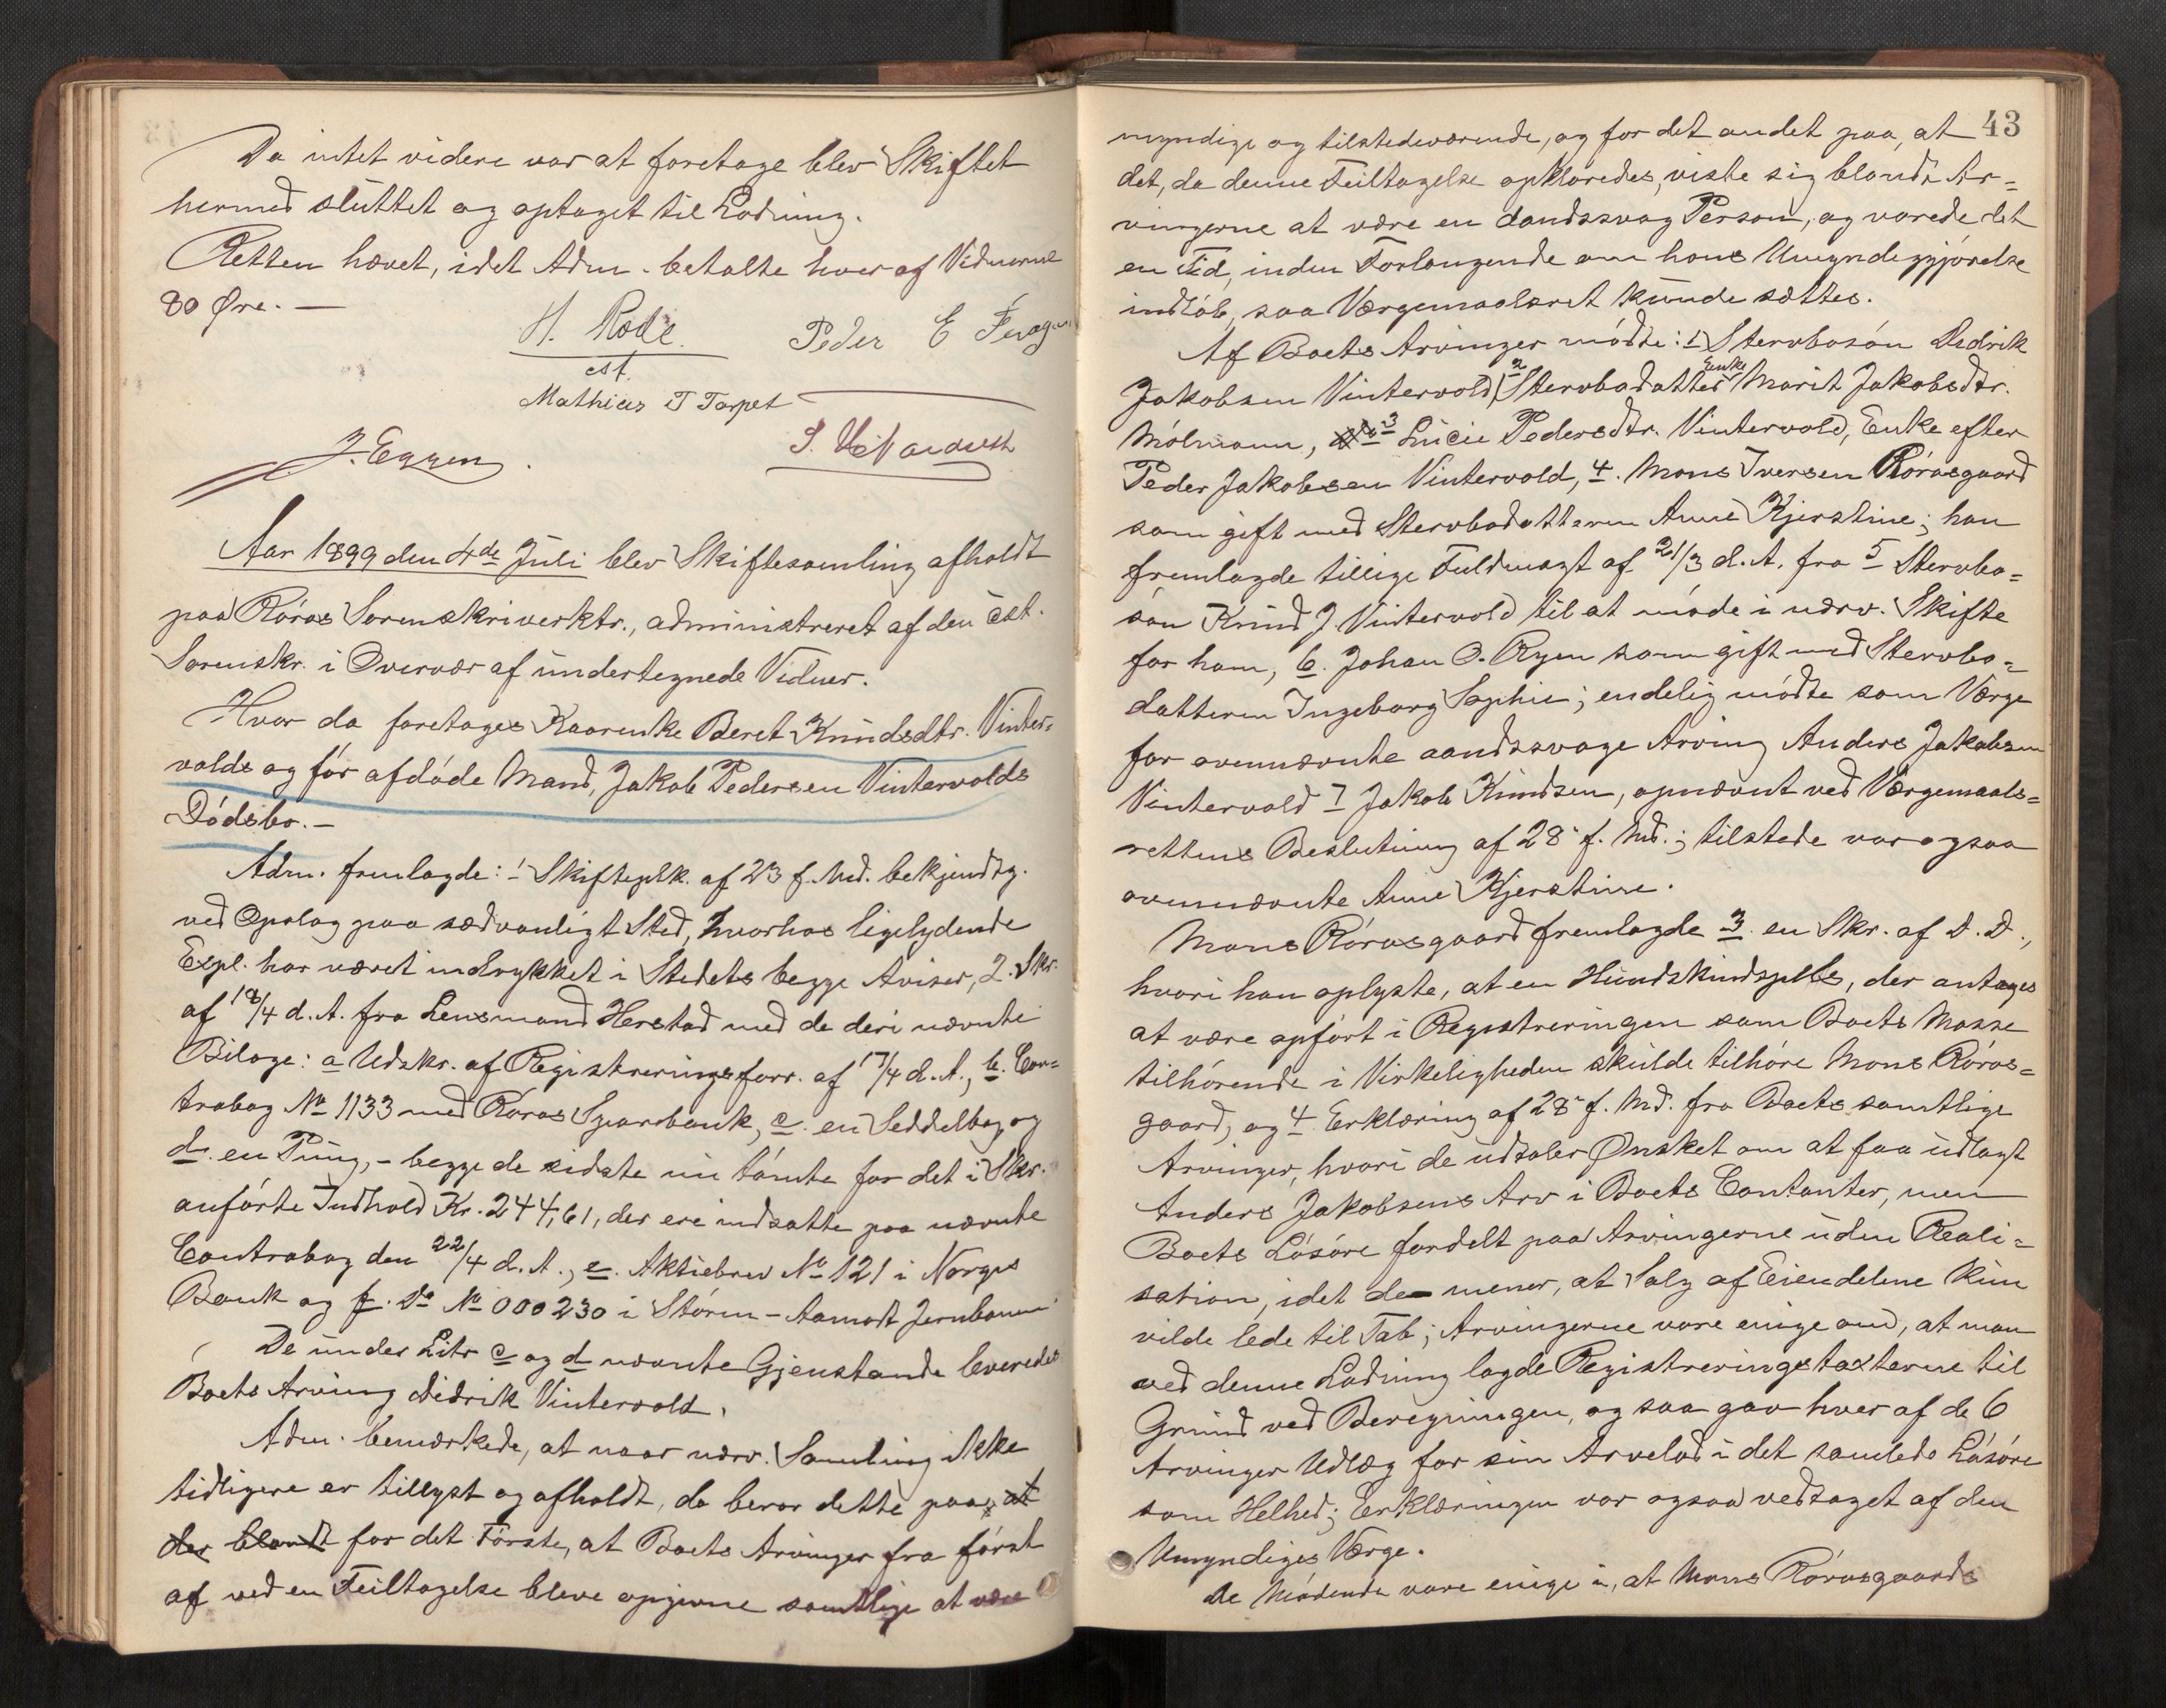 Da intet videre var at foretage blev Skiftet
hermed sluttet og optaget til Lodning.
Retten hævet, idet Adm. betalte hver af Vidnerne
80 Øre. —
H. Rode
est.
Peder E
Mathias T Torpet
J. Eggen
Aar 1899 den 4de Juli blev Skiftesamling afholdt
paa Röros Sorenskriverktr., administreret af den cst.
Sorenskr. i Overvær af undertegnede Vidner.
Hvor da foretoges Kaarenke Beret Knudsdtr. Vinter-
volds og før afdöde Mand, Jakob Pedersen Vintervolds
Dödsbo. —
Adm. fremlagde: 1 Skifteplk. af 23 f. Md. bekjendtg.
ved Opslag paa sædvanligt Sted, hvorhos ligelydende
Expl. har været indrykket i Stedets begge Aviser, 2. Skr.
af 18/4 d. A. fra Lensmand Herstad med de deri nævnte
Bilage: a Udskr. af Registreringsforr. af 17/4 d. A., b. Con-
trabog No 1133 med Röros Sparebank, c. en Seddelbog og
d. en Pung, - begge de sidste nu tömte for det i Skr.
anförte Indhold Kr. 244,61, der ere indsatte paa nævnte
Contrabog den 22/4 d. A., e. Aktiebrev No 121 i Norges
Bank og f. Do No 000230 i Stören - Aamodt Jernbane
De under Litr c og d nævnte Gjenstande leveredes
Boets Arving Didrik Vintervold.
Adm. bemærkede, at naar nærv. Samling ikke
tidligere er tillyst og afholdt, da beror dette paa, at
der blandt for det Förste, at Boets Arvinger fra först
af ved en Feiltagelse bleve opgivne samtlige at være
43
myndige og tilstedeværende, og for det andet paa, at
det, da denne Feiltagelse opklaredes, viste sig blandt Ar-
vingerne at være en aandssvag Person, og varede det
en Tid, inden Forlangende om hans Umyndiggjörelse
indlöb, saa Værgemaalsret kunde sættes.
Af Boets Arvinger mödte: 1) Stervbosön Dedrik
Jakobsen Vintervold, 2 Stervbodatter Enke Marit Jakobsdtr.
Mölmann, 3 Lucie Pedersdtr. Vintervold, Enke efter
Peder Jakobsen Vintervold, 4. Mons Iversen Rörosgaard
som gift med Stervbodatteren Anne Kjerstine; han
fremlagde tillige Fuldmagt af 21/3 d. A. fra 5 Stervbo-
sön Knud J. Vintervold til at möde i nærv. Skifte
for ham, 6. Johan O. Ryen som gift med Stervbo-
datteren Ingeborg Sophie; endelig mödte som Værge
for ovennævnte aandssvage Arving Anders Jakobsen
Vintervold 7 Jakob Knudsen, opnævnt ved Værgemaals-
rettens Beslutning af 28 f. Md.; tilstede var ogsaa
ovennævnte Anne Kjerstine.
Mons Rörosgaard fremlagde 3. en Skr. af D. D.,
hvori han oplyste, at en Hundskindspels, der antages
at være opfört i Registreringen som Boets Masse
tilhörende i Virkeligheden skulde tilhöre Mons Röros-
gaard, og 4 Erklæring af 28 f. Md. fra Boets samtlige
Arvinger, hvori de udtaler Ønsket om at faa udlagt
Anders Jakobsens Arv i Boets Contanter, men
Boets Lösöre fordelt paa Arvingerne uden Reali-
sation, idet de mener, at Salg af Eiendelene kun
vilde lede til Tab; Arvingerne vare enige om, at man
ved denne Lodning lagde Registreringstaxterne til
Grund ved Beregningen, og saa gav hver af de 6
Arvinger Udlæg for sin Arvelod i det samlede Lösöre
som Helhed; Erklæringen var ogsaa vedtaget af den
Umyndiges Værge.
De Mödende vare enige i, at Mons Rörosgaards